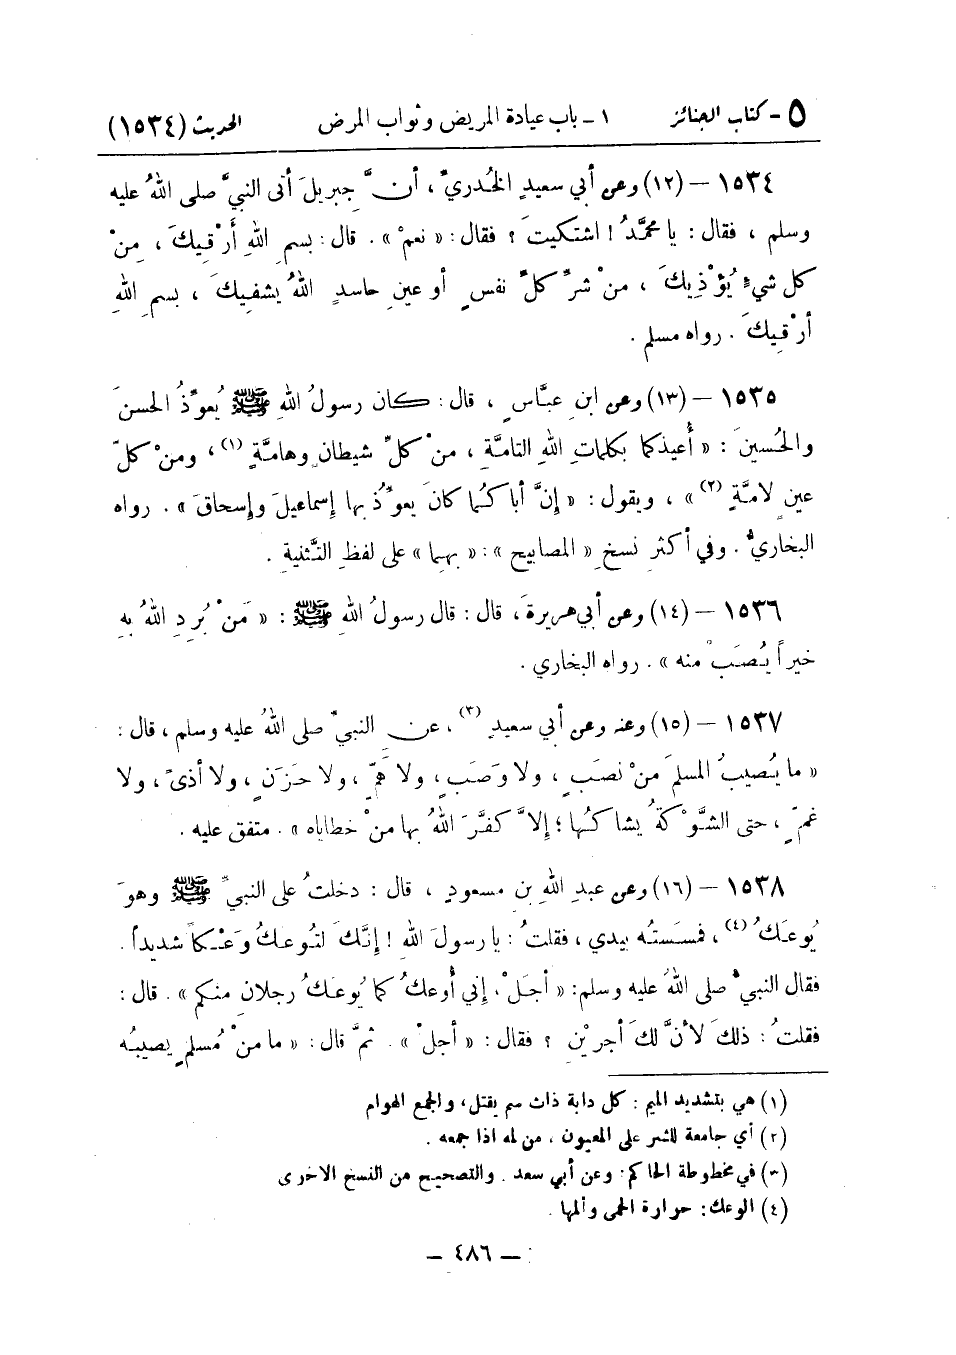 ٥ - كتاب الجنائز ١ - باب عيادة المريض وثواب المرض الحديث (١٥٣٤)
١٥٣٤ - (١٢) وعن أبي سعيدٍ الخُدريِّ، أنَّ جبريلَ أتى النبيَّ صلى اللهُ عليه
وسلم، فقال: يا محمَّدُ! اشتكيتَ؟ فقال: «نعمْ». قال: بسمِ اللهِ أَرْقيكَ، مِنْ
كل شيءٍ يُؤْذِيكَ، منْ شرِّ كلِّ نفسٍ أو عينِ حاسدٍ اللهُ يشفيكَ، بسمِ اللهِ
أرْقيكَ. رواه مسلم.
١٥٣٥ - (١٣) وعن ابنِ عبَّاسٍ، قال: كان رسولُ اللهِ ﷺ يُعوِّذُ الحسنَ
والحُسينَ: «أُعيذكما بكلماتِ اللهِ التامَّةِ، منْ كلِّ شيطانٍ وهامَّةٍ (١)، ومنْ كلِّ
عينٍ لامَّةٍ (٢)»، ويقول: «إنَّ أباكُما كانَ يعوِّذُ بها إسماعيلَ وإسحاقَ». رواه
البخاريُّ. وفي أكثرِ نسخِ «المصابيح»: «بهما» على لفظِ التَّثنيةِ.
١٥٣٦ - (١٤) وعن أبي هريرةَ، قال: قال رسولُ اللهِ ﷺ: «مَنْ يُرِدِ اللهُ بهِ
خيراً يُصَبْ منه». رواه البخاري.
١٥٣٧ - (١٥) وعنه وعن أبي سعيدٍ (٣)، عن النبيِّ صلى اللهُ عليه وسلم، قال:
«ما يُصيبُ المسلمَ منْ نصَبٍ، ولا وَصَبٍ، ولا همٍّ، ولا حَزَنٍ، ولا أذىً، ولا
غمٍّ، حتى الشَّوْكةُ يشاكُها؛ إلاَّ كفَّرَ اللهُ بها منْ خطاياه». متفق عليه.
١٥٣٨ - (١٦) وعن عبدِ اللهِ بنِ مسعودٍ، قال: دخلتُ على النبيِّ ﷺ وهوَ
يُوعَكُ (٤)، فمسَستُه بيدي، فقلتُ: يا رسولَ اللهِ! إنَّكَ لتُوعكُ وَعْكاً شديداً.
فقال النبيُّ صلى اللهُ عليه وسلم: «أجَلْ، إني أُوعكُ كما يُوعَكُ رجلانِ منكم». قال:
فقلتُ: ذلكَ لأنَّ لكَ أجريْنِ؟ فقال: «أجلْ». ثمَّ قال: «ما منْ مُسلمٍ يصيبُه
(١) هي بتشديد الميم: كل دابة ذات سم يقتل، والجمع الهوام
(٢) أي جامعة للشر على المعيون، من لمه اذا جمعه.
(٣) في مخطوطة الحاكم: وعن أبي سعد. والتصحيح من النسخ الاخرى
(٤) الوعك: حرارة الحمى وألمها.
- ٤٨٦ -